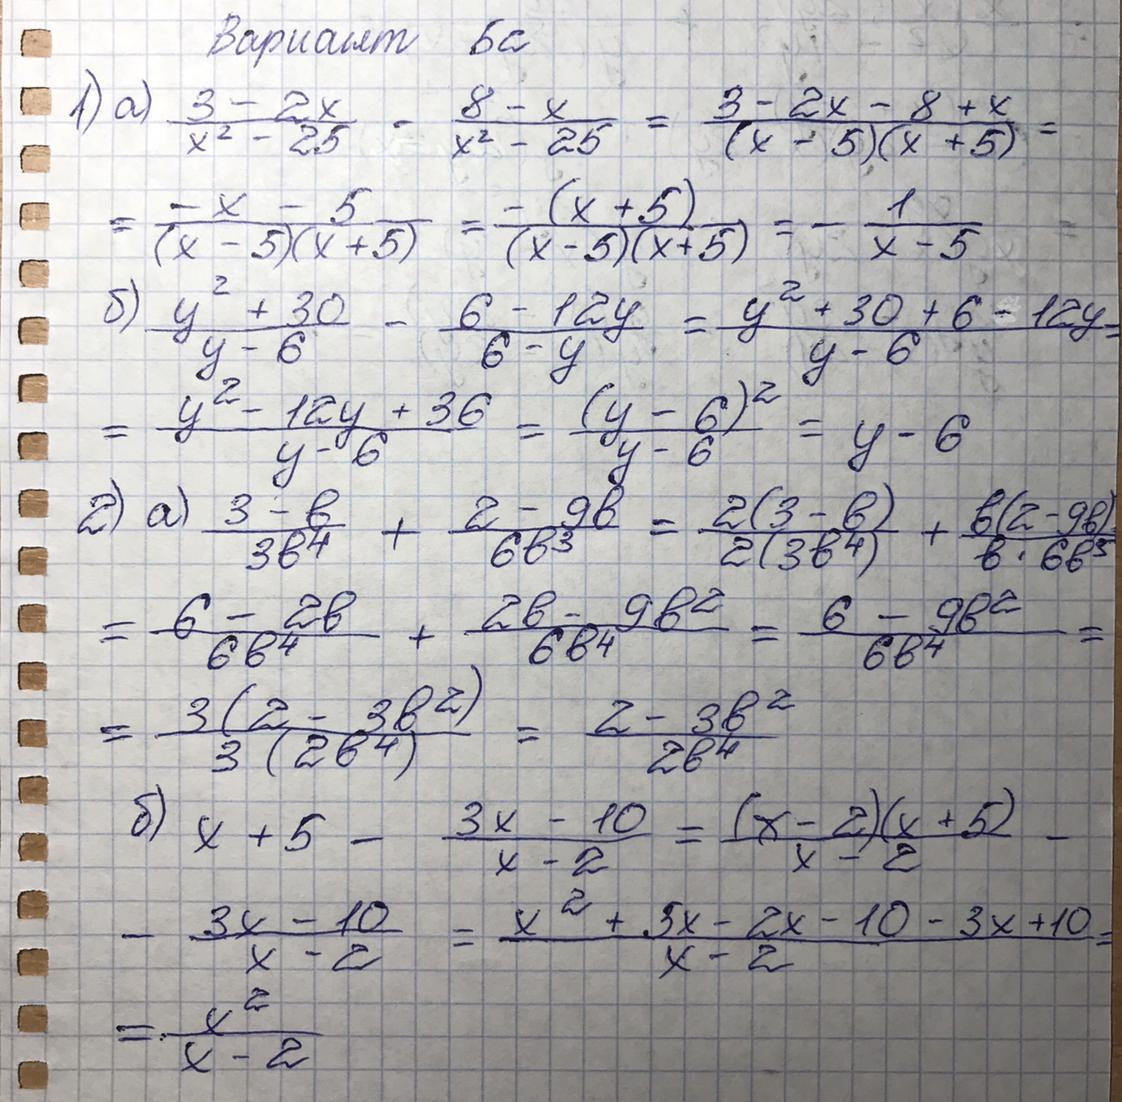 Вариант Бс
1) а) (3 - 2x)/(x² - 25) - (8 - x)/(x² - 25) = (3 - 2x - 8 + x)/((x - 5)(x + 5)) =
= (-x - 5)/((x - 5)(x + 5)) = (-(x + 5))/((x - 5)(x + 5)) = - 1/(x - 5)
б) (y² + 30)/(y - 6) - (6 - 12y)/(6 - y) = (y² + 30 + 6 - 12y)/(y - 6) =
= (y² - 12y + 36)/(y - 6) = (y - 6)²/(y - 6) = y - 6
2) а) (3 - в)/(3в⁴) + (2 - 9в)/(6в³) = (2(3 - в))/(2(3в⁴)) + (в(2 - 9в))/(в · 6в³)
= (6 - 2в)/(6в⁴) + (2в - 9в²)/(6в⁴) = (6 - 9в²)/(6в⁴) =
= (3(2 - 3в²))/(3(2в⁴)) = (2 - 3в²)/(2в⁴)
б) x + 5 - (3x - 10)/(x - 2) = ((x - 2)(x + 5))/(x - 2) -
- (3x - 10)/(x - 2) = (x² + 5x - 2x - 10 - 3x + 10)/(x - 2) =
= x²/(x - 2)